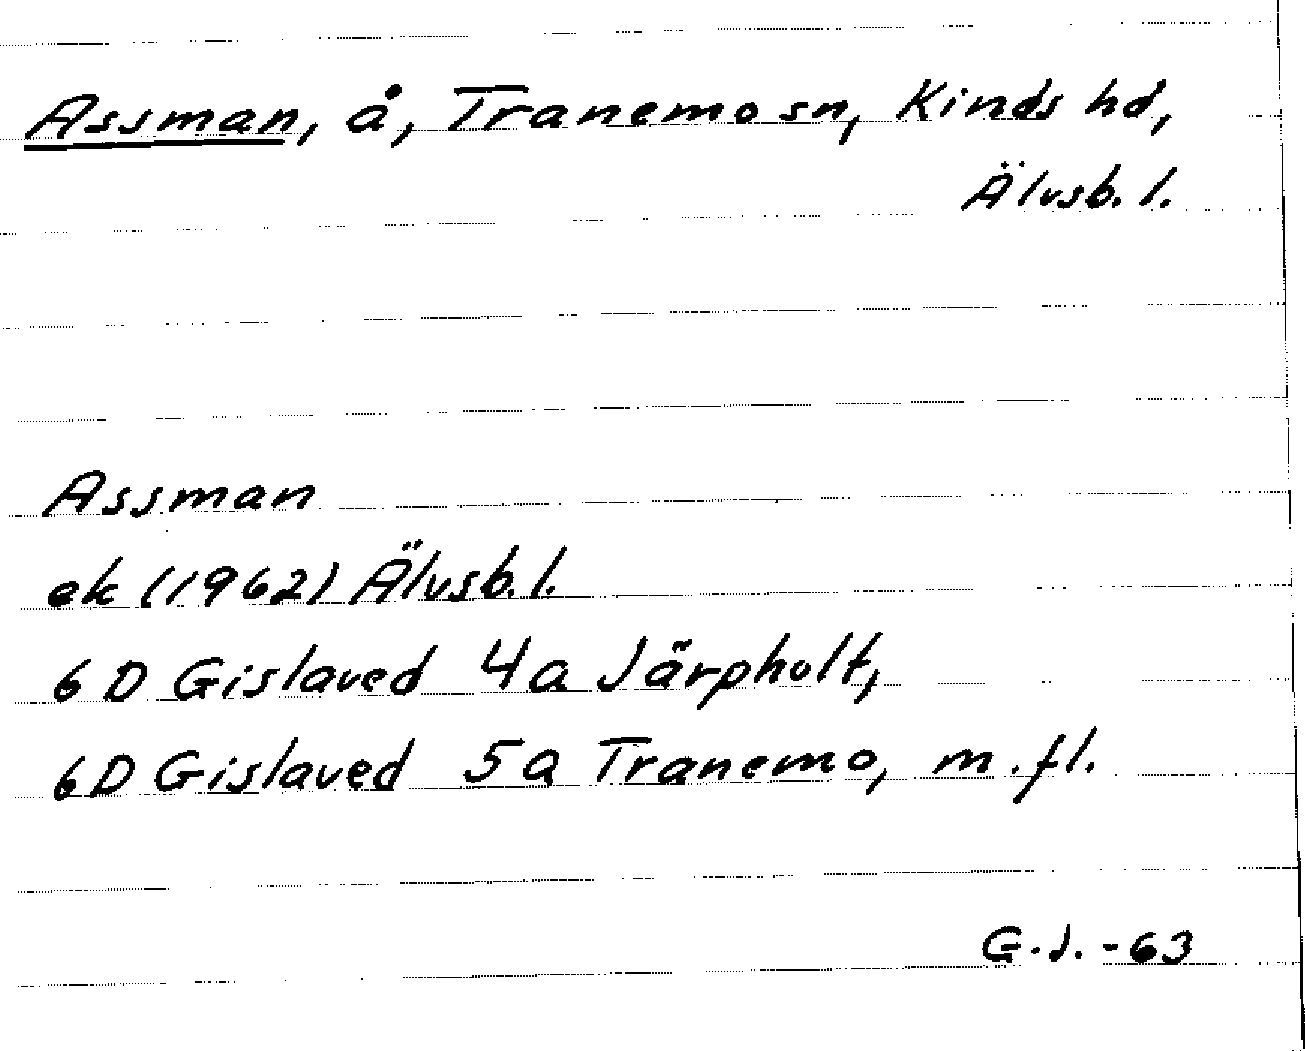 Assman, å, Tranemo sn, Kinds hd,
Älvsb. l.
Assman
ek (1962) Älvsb. l.
6 D Gislaved 4a Järpholt,
6D Gislaved 5a Tranemo, m.fl.
G.J. -63